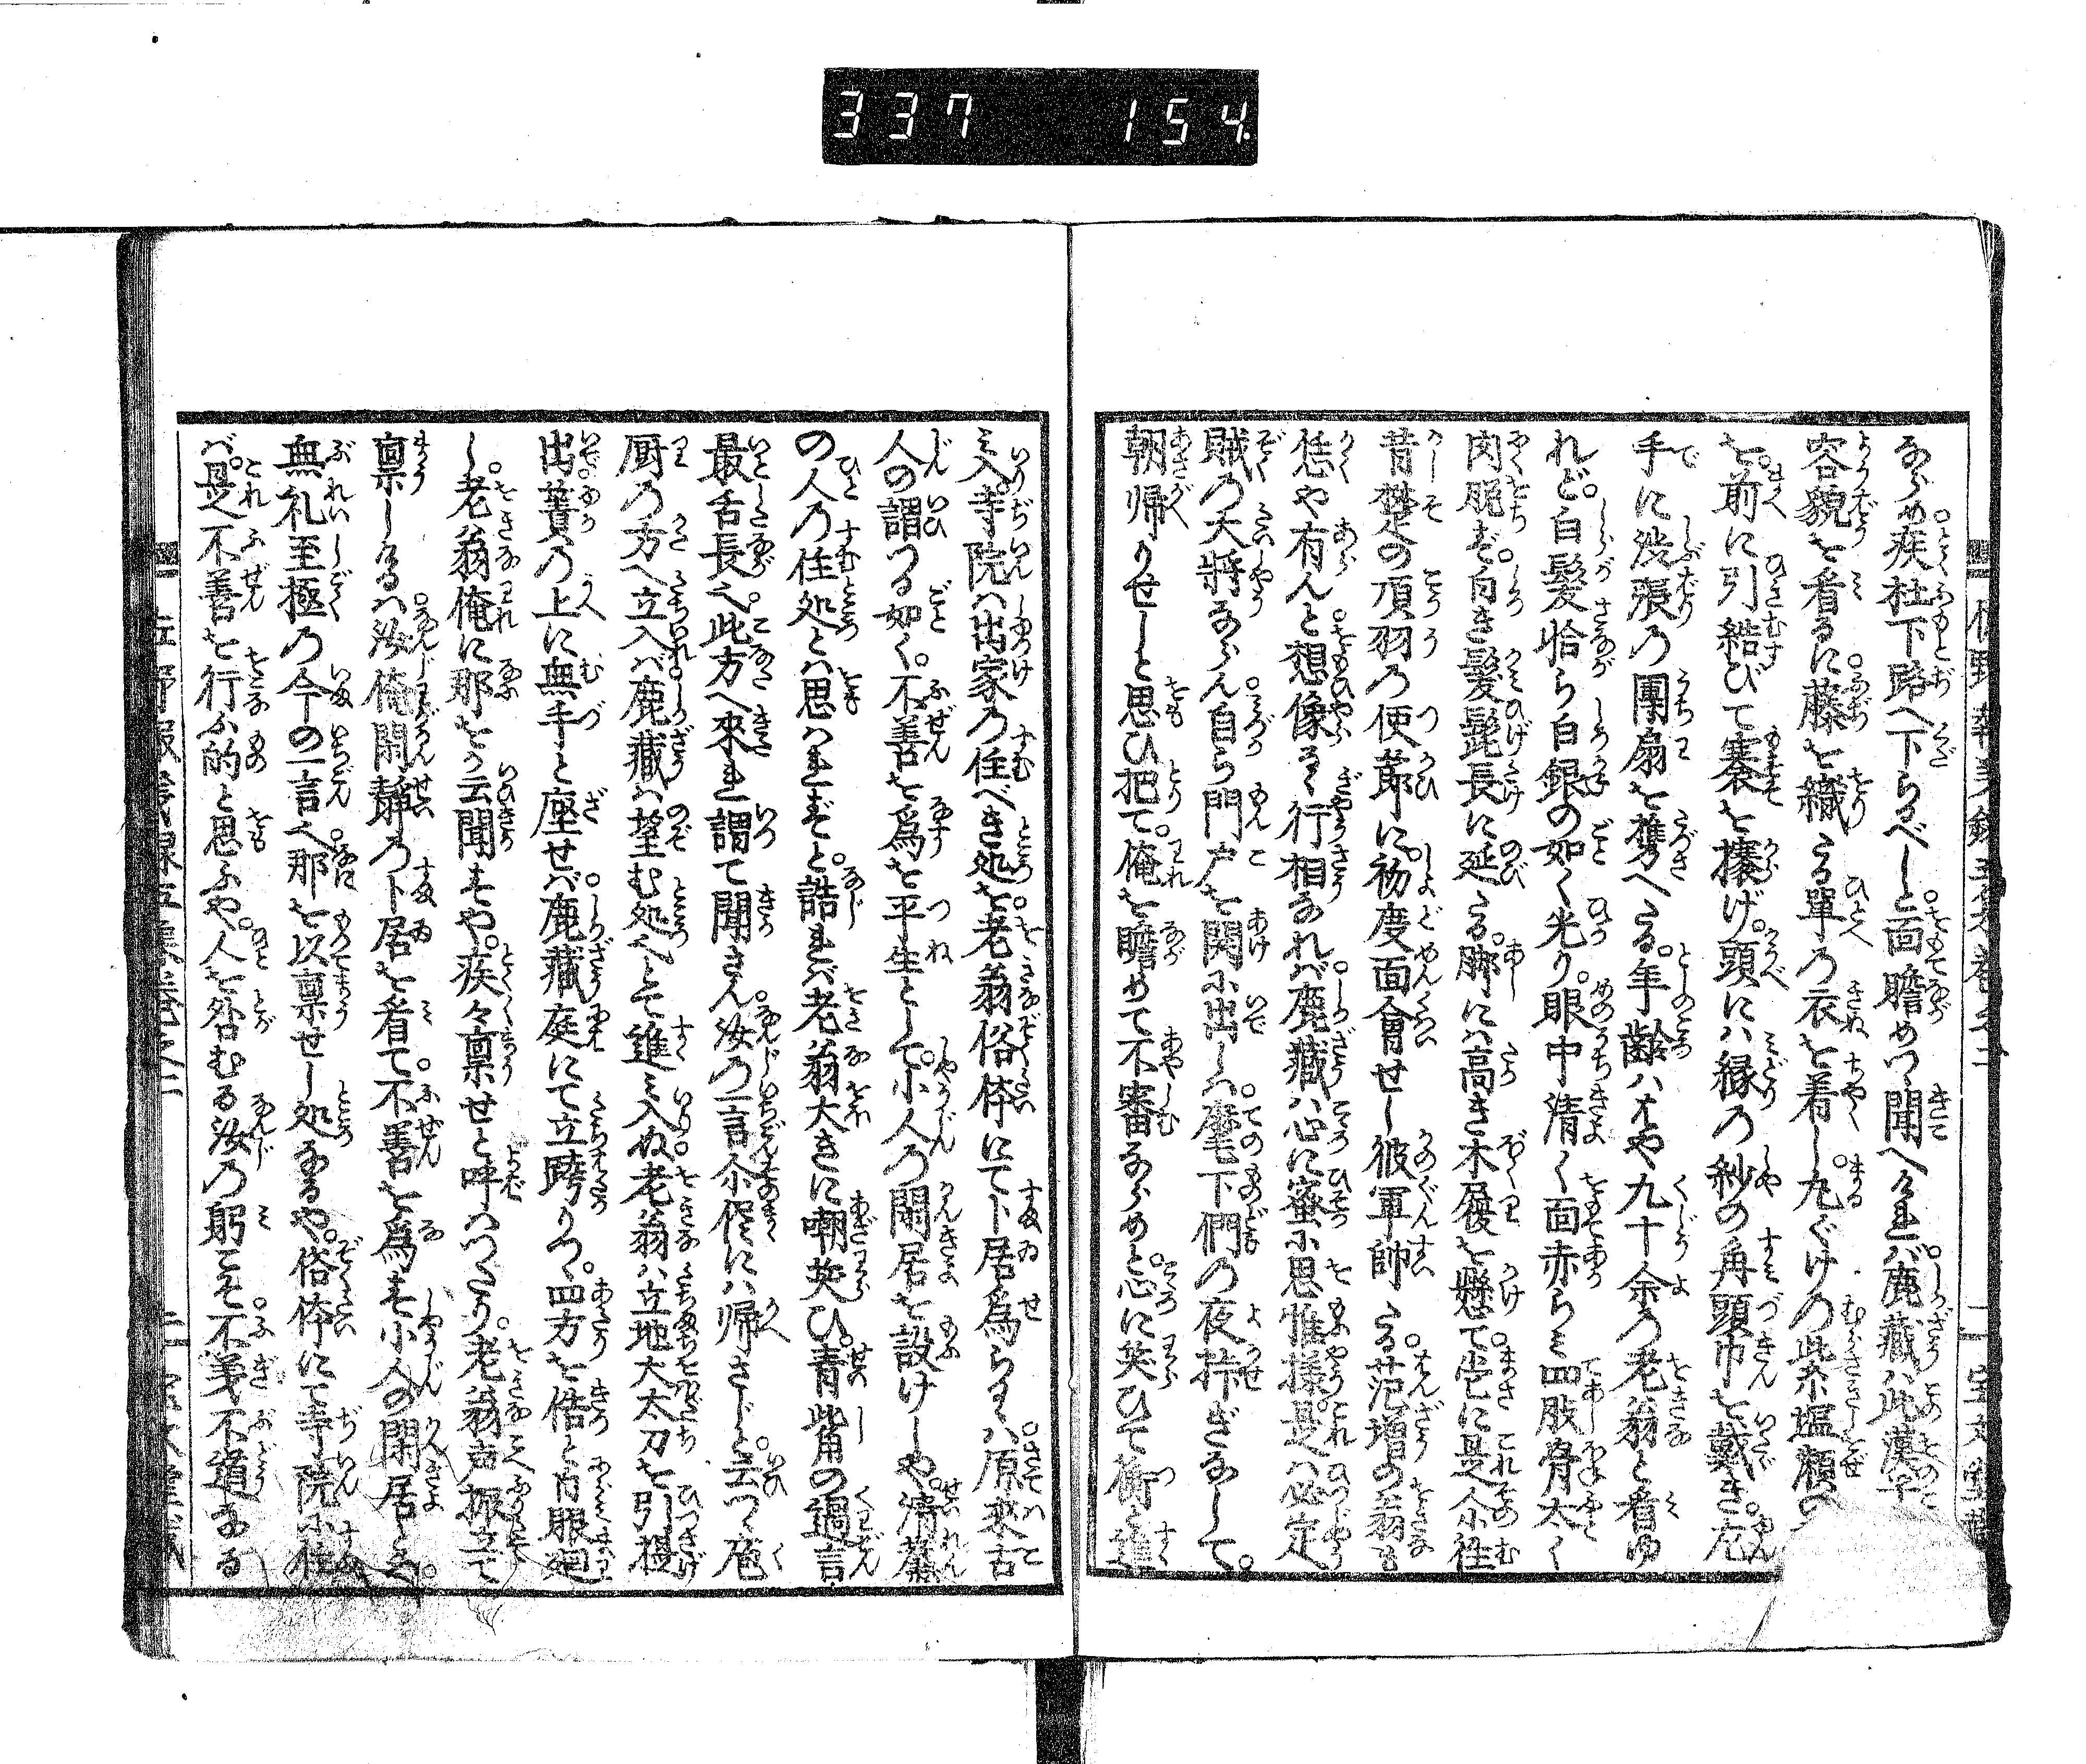 337 154
ならめ疾杜下路へ下らるべしと面瞻めつゝ聞へければ鹿藏ハ此漢子
容貌を看るに藤を織たる單の衣を着し丸ぐけの紫塩瀬の
を前に引結びて裳を攘げ頭にハ緑の紗の角頭巾を戴き
手に渋張の團扇を携へたる年齢ハはや九十余の老翁と看ゆ
れど白髮恰ら白銀の如く光り眼中清く面赤らミ四肢骨太く
肉脱ず白き髮髭長に延たる脚にハ高き木履を懸て
昔楚の項羽の使節に初度面會せし彼軍帥たる范増の翁も
恁や有んと想像るゝ行相なれバ鹿藏ハ心に蜜に思惟様是ハ必定
賊の大將ならん自ら門戸を関に出しハ麾下們の夜挊ぎなして
朝帰りせしと思ひ把て俺を瞻めて不審ならめと心に笑ひて
ミ入寺院ハ出家の住べき処を老翁俗体にて卜居為らるゝハ原來古
人の謂つる如く不善を為を平生として小人の閑居を設けしや清
の人の住処とハ思ハれずと誥れバ老翁大きに嘲笑ひ青觜の過言
最舌長し此方へ來れ謂て聞さん汝の一言尒儘にハ帰さじと云つゝ庖
厨の方へ立入バ鹿藏ハ望む処へとて進ミ入ぬ老翁ハ立地大太刀を引提
出簀の上に無手と座せバ鹿藏庭にて立跨りつゝ四方を倍と
し老翁俺に那をか云聞すや疾々禀せと呼ハつたり老翁声振立て
禀しけるハ汝俺閑靜の卜居を看て不善を為す小人の閑居と
無礼至極の今の一言那を以禀せし処なるや俗体にて寺院に住
バ是不善を行ふ的と思ふや人を咎むる汝の躬こそ不義不道なる